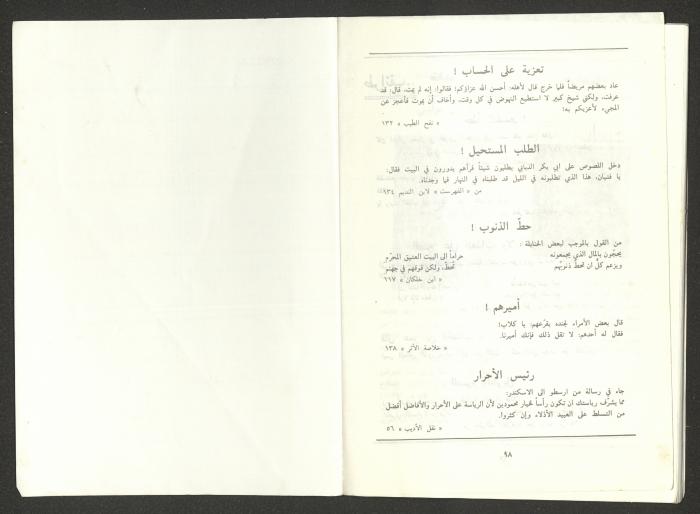 تعزية على الحساب !
عاد بعضهم مريضاً فلما خرج قال لأهله: أحسن الله عزاؤكم! فقالوا: إنه لم يمت، قال: قد
عرفت، ولكني شيخ كبير لا استطيع النهوض في كل وقت، وأخاف أن يموت فأعجز عن
المجيء لأعزيكم به!
« نفح الطيب » ١٣٢
الطلب المستحيل !
دخل اللصوص على ابي بكر الدباني يطلبون شيئاً فرآهم يدورون في البيت فقال:
يا فتيان، هذا الذي تطلبونه في الليل قد طلبناه في النهار فما وجدناه.
من « الفهرست » لابن النديم ٩٣٤
حطّ الذنوب !
من القول بالموجب لبعض الحنابلة :
يحجّون بالمال الذي يجمعونه حراماً الى البيت العتيق المحرّم
ويزعم كلّ ان تحطّ ذنوبهم تُحَطّ، ولكن فوقهم في جهنم
« ابن خلكان » ٦١٧
أميرهم !
قال بعض الأمراء لجنده يقرّعهم: يا كلاب!
فقال له أحدهم: لا تقل ذلك فإنك أميرنا.
« خلاصة الأثر » ١٣٨
رئيس الأحرار
جاء في رسالة من ارسطو الى الاسكندر:
مما يشرّف رياستك ان تكون رأساً لخيار محمودين لأن الرياسة على الأحرار والأفاضل أفضل
من التسلط على العبيد الأذلاء وإن كثروا.
« نقل الأديب » ٥٦
٩٨